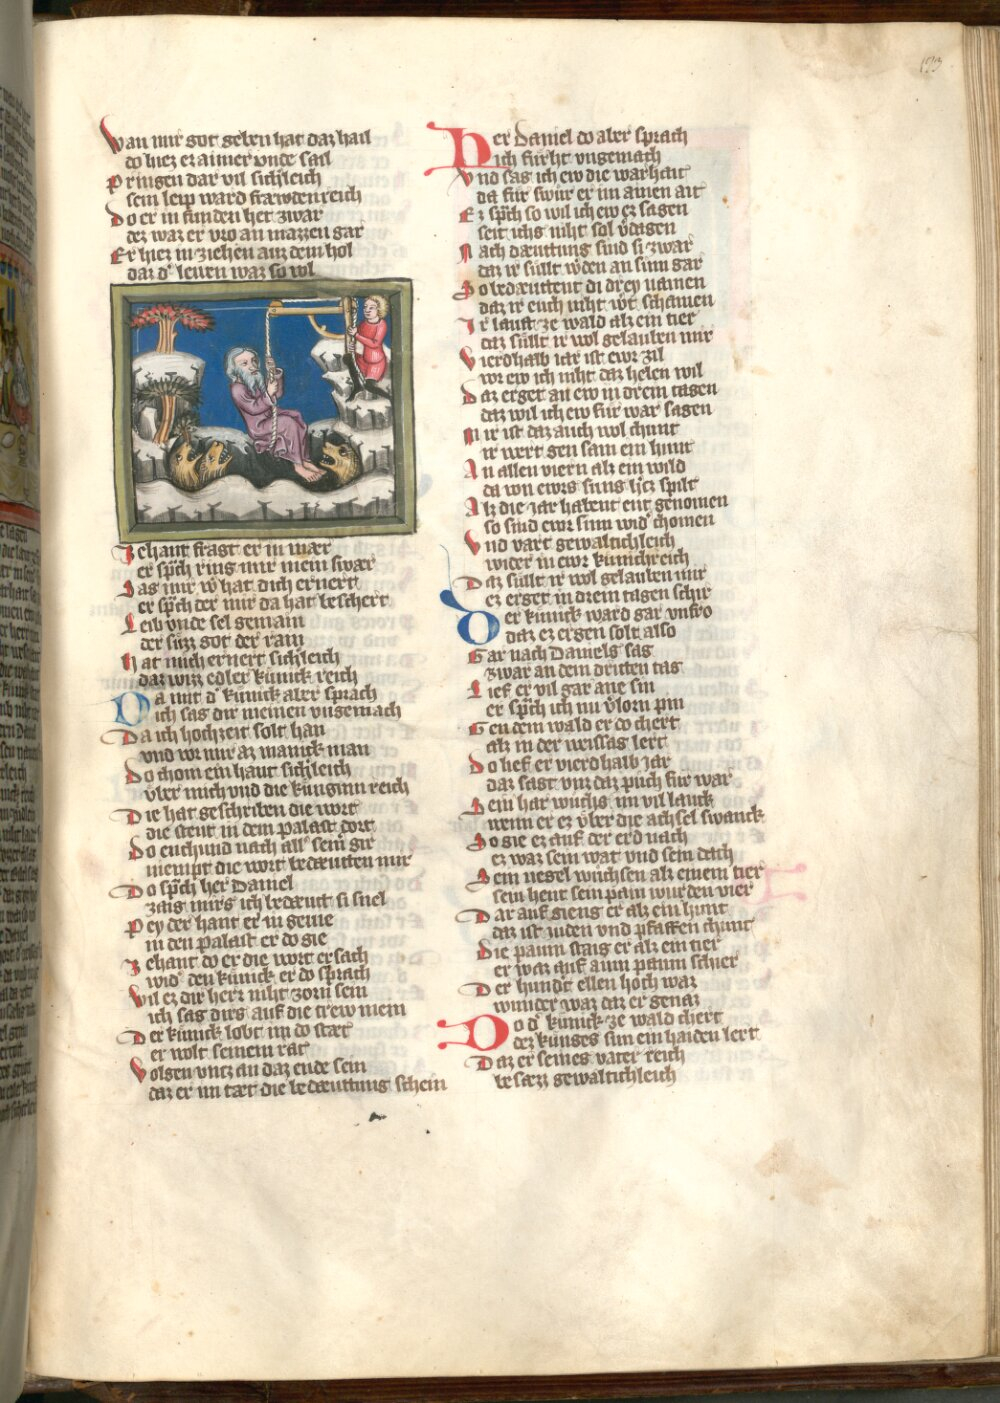 193
Wan mir got geben hat daz hail
do hiez er aimer vnde sail
Pringen dar vil sichleich
sein leip ward fræwden reich
Do er in funden het zwar
dez waz er vro an mazzen gar
Er hiez in ziehen auz dem hol
daz d' leuen waz so vol
Zehant fragt er in mær
er sp̄ch ring mir mein swær
Sag mir w' hat dich ernert
er sp̄ch der mir da hat beschert
Leib vnde sel gemain
der süzz got der rain
Hat mich ernert sichleich
daz wizz edler künick reich
Da mit d' künick aber sprach
ich sag dir meinen vngemach
Da ich hochzeit solt han
vnd vor mir az manick man
Do chom ein hant sichleich
vber mich vnd die künginn reich
Die hat geschriben die wort
die stent in dem palast dort
Do enchund nach all' sein' gir
niempt die wort bedæutten mir
Do sp̄ch her Daniel
zaig mirs ich bedæut si snel
Pey der hant er in gevie
in den palast er do gie
Zehant do er die wort ersach
wid' den künick er do sprach
Wil ez dir herz niht zorn sein
ich sag dirs auf die trew mein
Der künick lobt im do stæt
er wolt seinem rat
Volgen vncz an daz ende sein
daz er im tæt die bedæuttung schein
Her Daniel do aber sprach
Ich fürht vngemach
Vnd sag ich ew die warhait
da für swür er im ainen ait
Er sp̄ch so wil ich ew ez sagen
seit ichs niht sol v'dagen
Nach dæuttung sind si zwar
daz ir süllt w'den an sinn gar
So bedæuttent di drey namen
daz ir euch niht w't schamen
Ir lauft ze wald alz ein tier
daz süllt ir wol gelauben mir
Vierdhalb iar ist ewr zil
vor ew ich niht daz helen wil
Daz erget an ew in drein tagen
daz wil ich ew für war sagen
Mir ist daz auch wol chunt
ir wert gen sam ein hunt
An allen viern alz ein wild
da von ewrs sings
Alz die iar habent ent genomen
so sind ewr sinn wid' chomen
Vnd vart gewaltichleich
wider in ewr künichreich
Daz süllt ir wol gelauben mir
ez erget in drein tagen schir
Der künick ward gar vnfro
daz ez ergen solt also
Gar nach Daniels sag
zwar an dem dritten tag
Lief er vil gar ane sin
er sp̄ch ich nu v'lorn pin
Gen dem wald er do chert
alz in der weissag lert
Do lief er vierdhalb iar
daz sagt vnz daz puch für war
Sein har wuchs im vil lanck
wenn er ez vber die achsel swanck
So gie ez auf der erd nach
ez waz sein wat vnd sein dach
Sein negel wuchsen alz einem tier
sein hent sein pain wurden vier
Dar auf gieng er alz ein hunt
daz ist iuden vnd pfaffen chunt
Die paum staig er alz ein tier
er waz auf aim paum schier
Der hundt ellen hoch waz
wunder waz daz er genaz
Do d' künick ze wald chert
dez künges sun ein haiden lert
Daz er seines vater reich
besæzz gewaltichleich